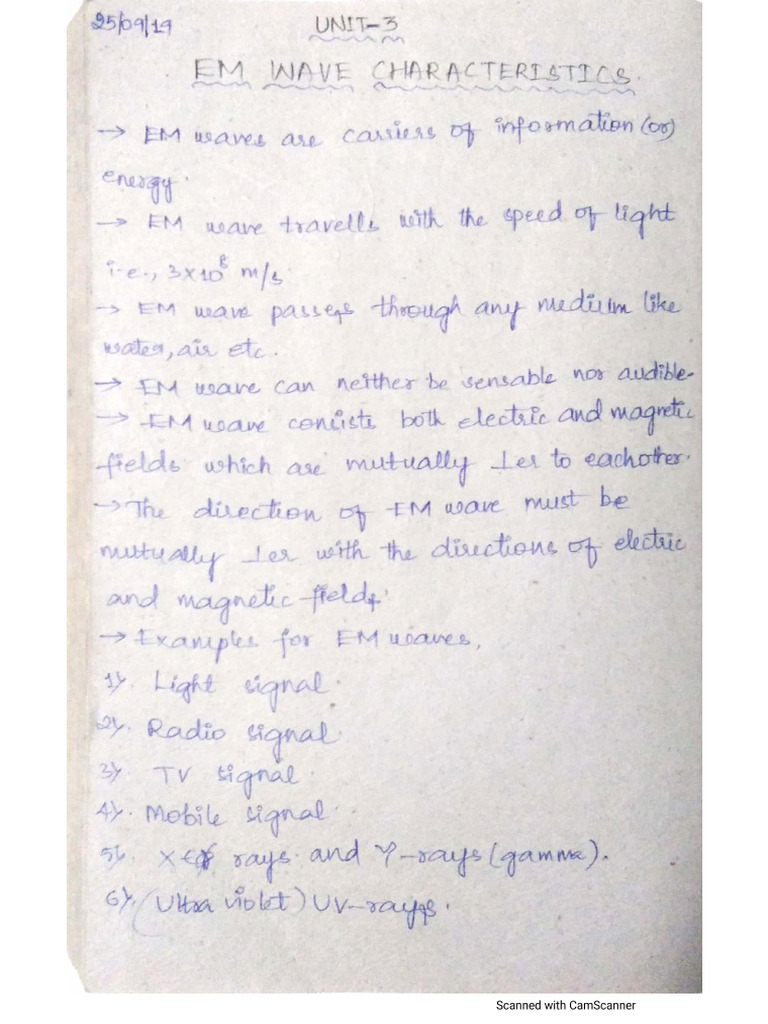 25/09/19 UNIT-3
EM WAVE CHARACTERISTICS.
→ EM waves are carriers of information (or)
energy.
→ EM wave travells with the speed of light
i.e., 3×10⁸ m/s.
→ EM wave passes through any medium like
water, air etc.
→ EM wave can neither be sensable nor audible.
→ EM wave consists both electric and magnetic
fields which are mutually ⊥er to eachother.
→ The direction of EM wave must be
mutually ⊥er with the directions of electric
and magnetic fields.
→ Examples for EM waves,
1). Light signal.
2). Radio signal.
3). TV signal.
4). Mobile signal.
5). X rays and γ-rays (gamma).
6). (Ultra violet) UV-rays.
Scanned with CamScanner